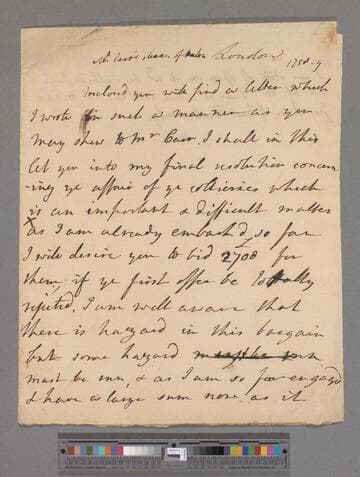 Mr Carr's share of London 1758-9
Inclosed you will find a letter which
I wrote in such a manner as you
may shew to Mr Carr. I shall in this
let you into my final resolution concern
-ing ye affair of ye collieries which
is an important & difficult matter
as I am already embark'd so far
I will desire you to bid 2700£ for
them, if ye first offer be totally
rejected. I am well aware that
there is hazard in this bargain
but some hazard must be run
must be run, & as I am so far engag'd
& have a large sum now as it